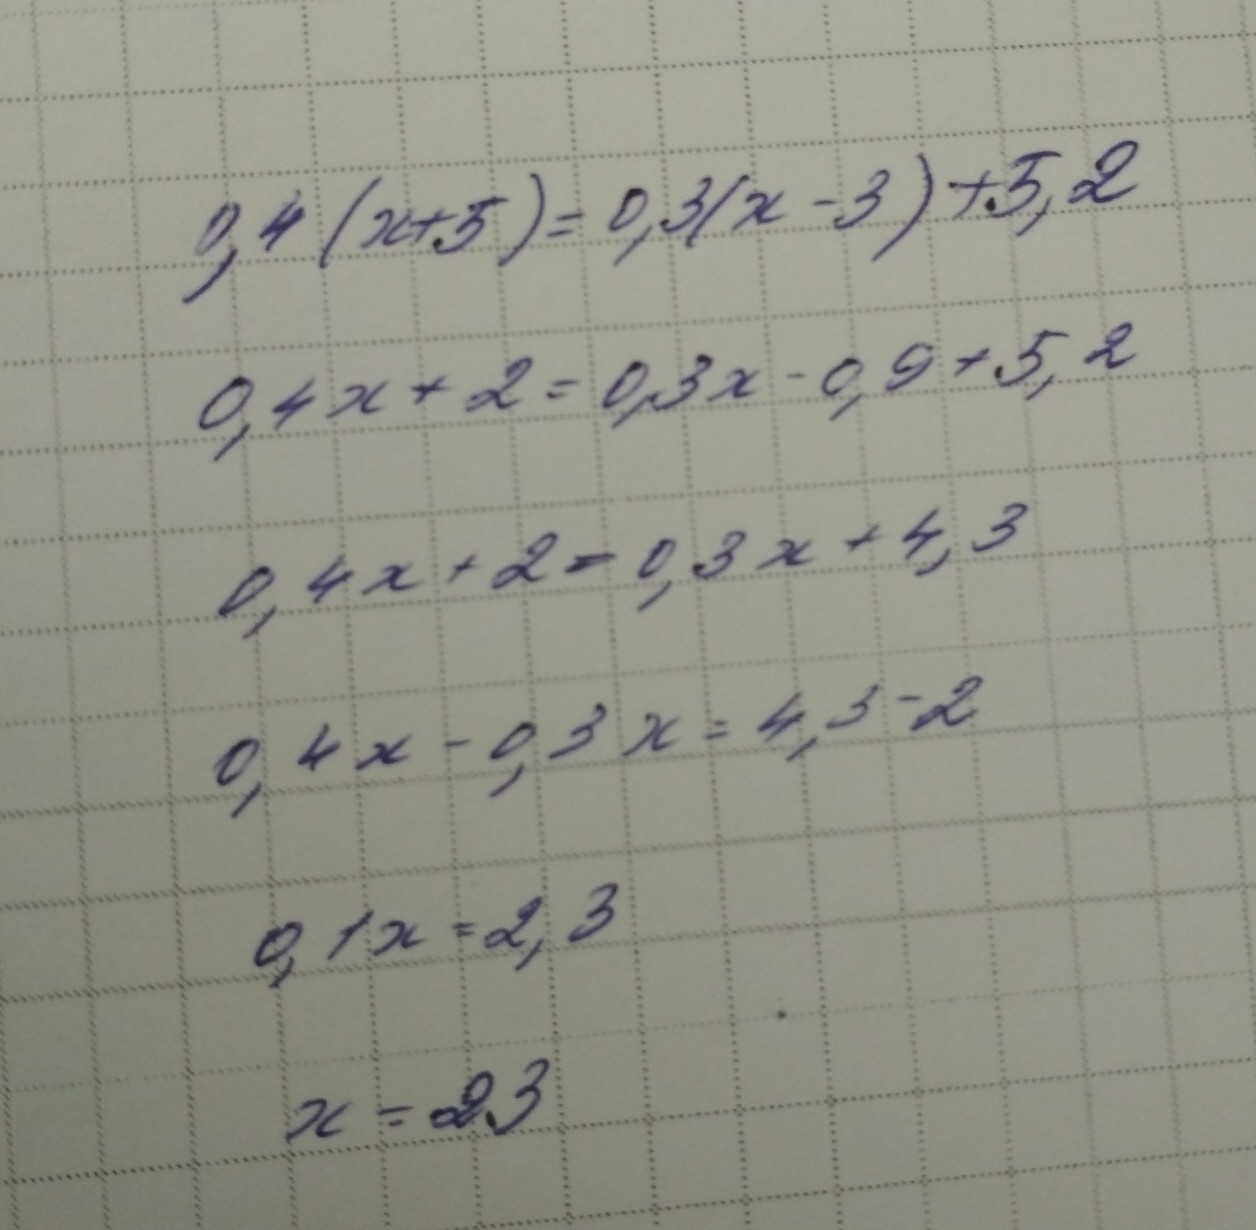 0,4(x+5)=0,3(x-3)+5,2
0,4x+2=0,3x-0,9+5,2
0,4x+2=0,3x+4,3
0,4x-0,3x=4,3-2
0,1x=2,3
x=23